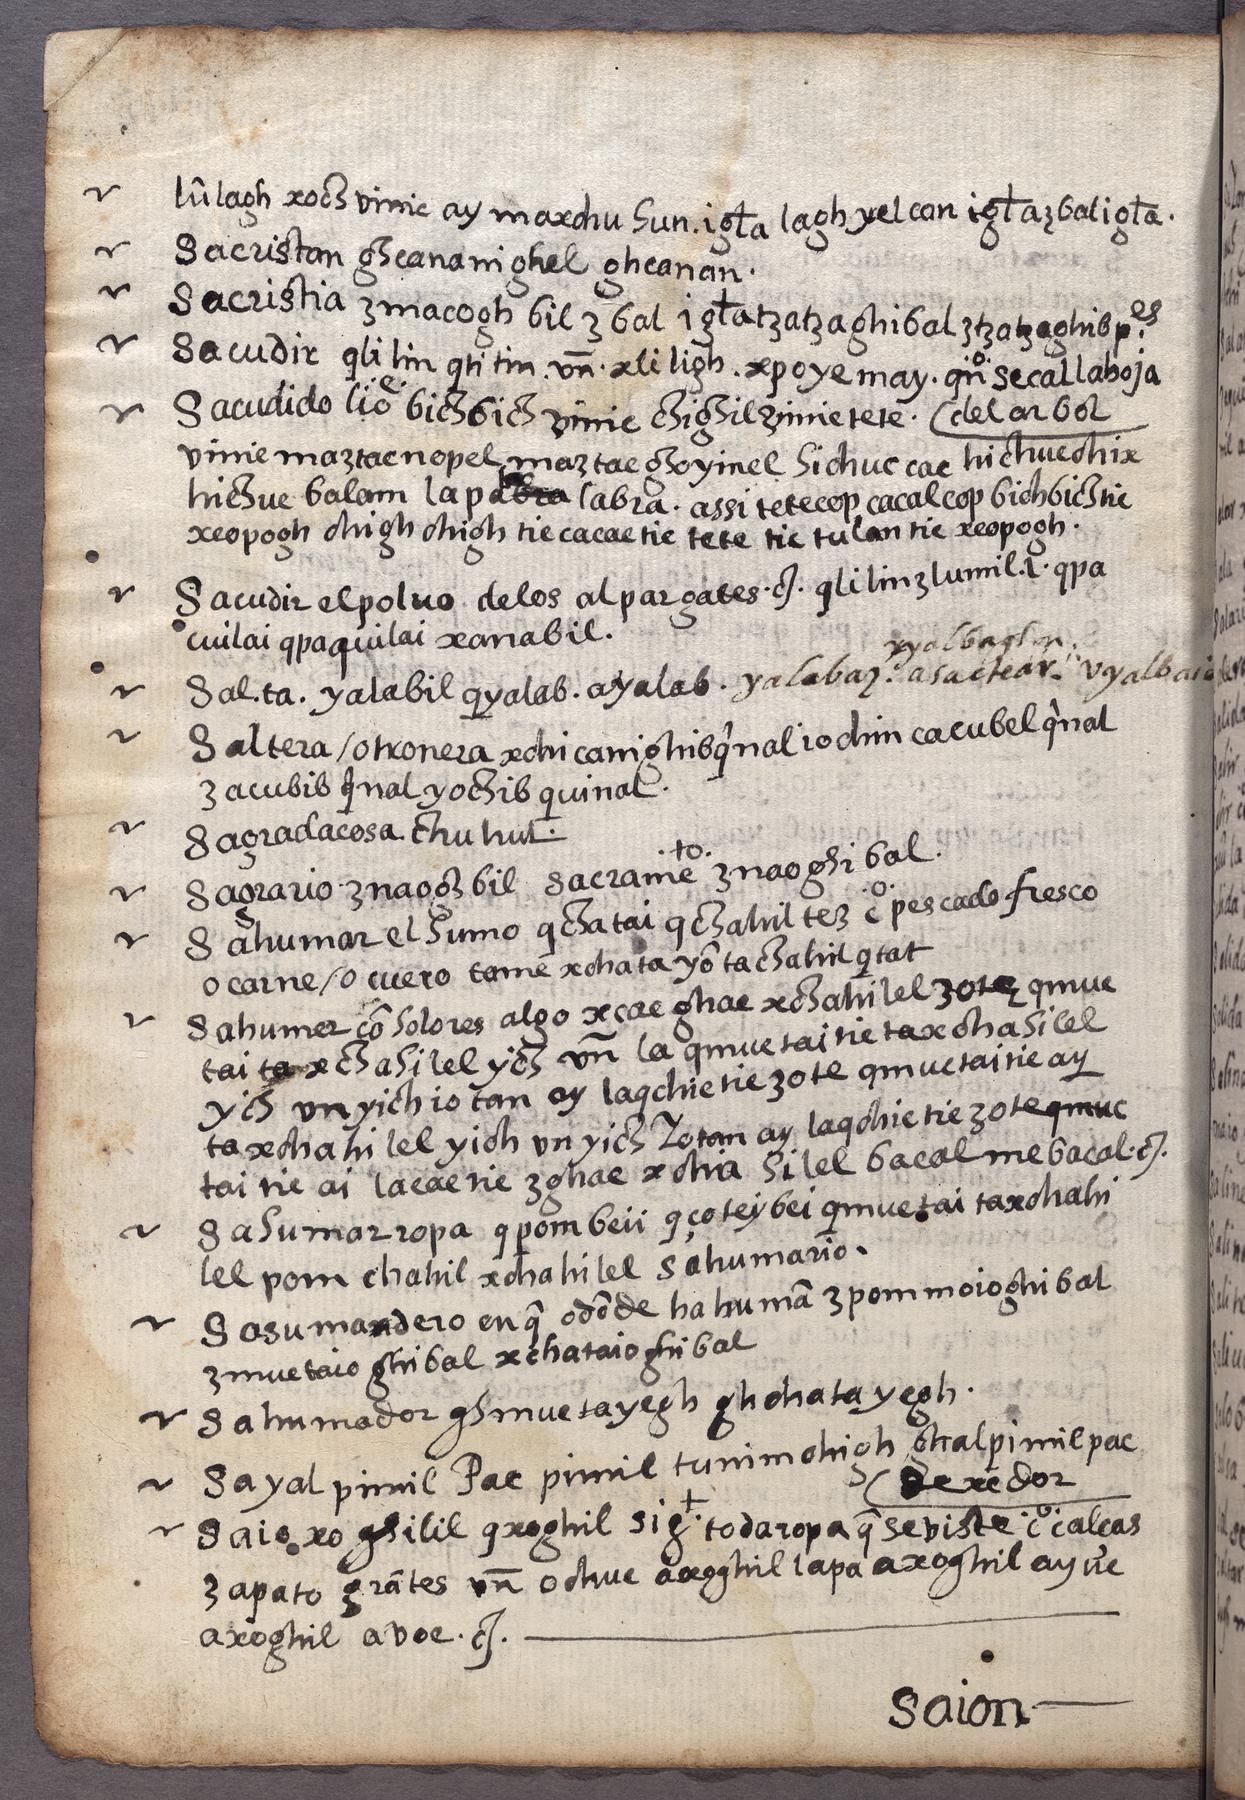 lûlagh xoch vinic ay maxchu hun. iglta lagh yelcan iglta zbal iglta.
Sacristan ghcanan ighel ghcanan.
Sacristia zmacogh bil zbal iglta tzatzaghibal ztzatzaghib p.es
Sacudir qlilin qtitin. vn̄. xliligh. xpoye may. qn̄.o. se cal la hoja
(del arbol
Sacudido lio.e. bichbich vinic chighilzinic tete.
vinic maztac nopel maztac ghoyinel hichuc cac hichuc chix
hichuc balam la pa labra. assi tetecop cacalcop bichbichtic
xcopogh chigh chigh tic cacactic tete tic tulan tic xcopogh.
Sacudir el poluo de los alpargates. c̄. qlilinzlumil. l. qpa
cuilai qpaquilai xanabil.
xyalbaghon.
Sal.ta. yalabil qyalab. ayalab. yalabaz. a sactear. vyalbai
Saltera / otronera xchicanighib q̂nal iochin cacubel q̂nal
zacubib q̂nal yochib quinal.
Sagrada cosa. chu hul.
Sagrario znaoghbil sacramē.to. znaoghibal.
Sahumar el humo qchatai qchahiltez c̄.o. pescado fresco
o carne / o cuero tamē xchata yō tachahil qtat
Sahumer cō holores algo xcac ghac xchahilel zotez qmuc
tai ta xchahilel ych vn̄ la qmuc tai tic taxchahilel
ych vn yich iotan ay laqchictic zote qmuctaitic ay
taxchahilel yich vn yich Zotan ay laqchictic zote qmuc
tai tic ai lacactic zghac xchia hilel bacal me bacal. c̄.
Sahumar ropa qpombeii qçoteybei qmuctai taxchahi
lel pom chahil xchahilel sahumario.
Sasumandero en q̄ odōde hahumā zpommoioghibal
zmuctaioghibal xchataioghibal
Sahumador ghmuctayegh ghchatayegh.
Sayal pimil Pac pimil tunimchigh ghalpimilpac
(texedor
Saio xoghilil qxoghil sig.t. toda ropa q̄ se viste. c̄.o. calças
zapato grātes vn̄ ochuc axoghil lapa axoghil ay vc
axoghil avoc. c̄.
saion